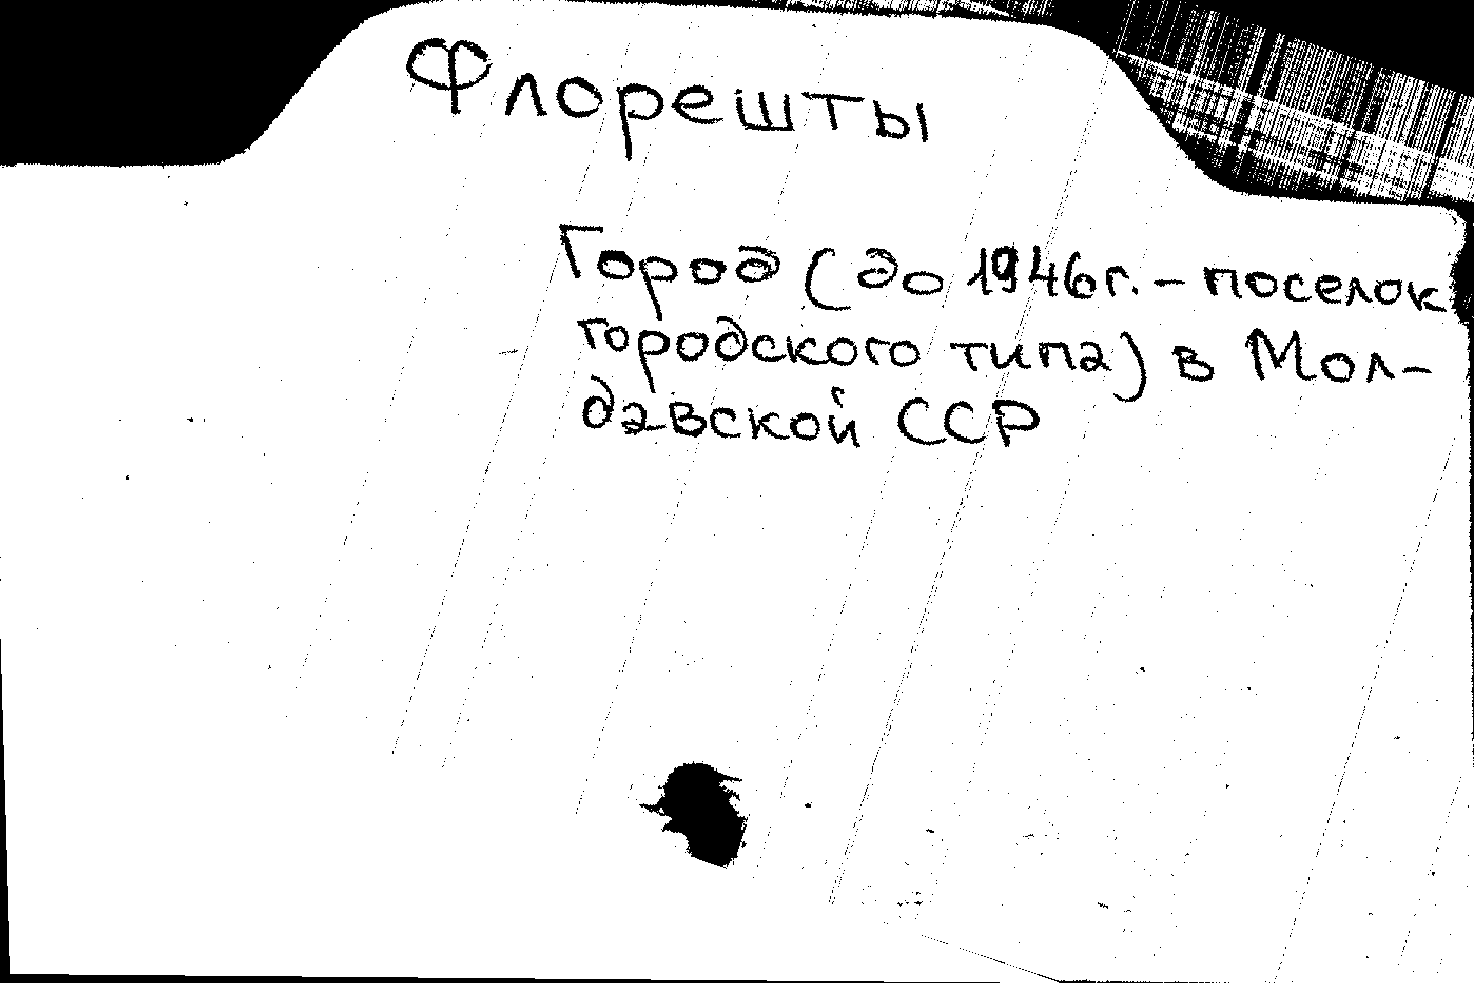 Флорешты
Город (до 1946г. - поселок
городского типа) в Мол-
давской ССР